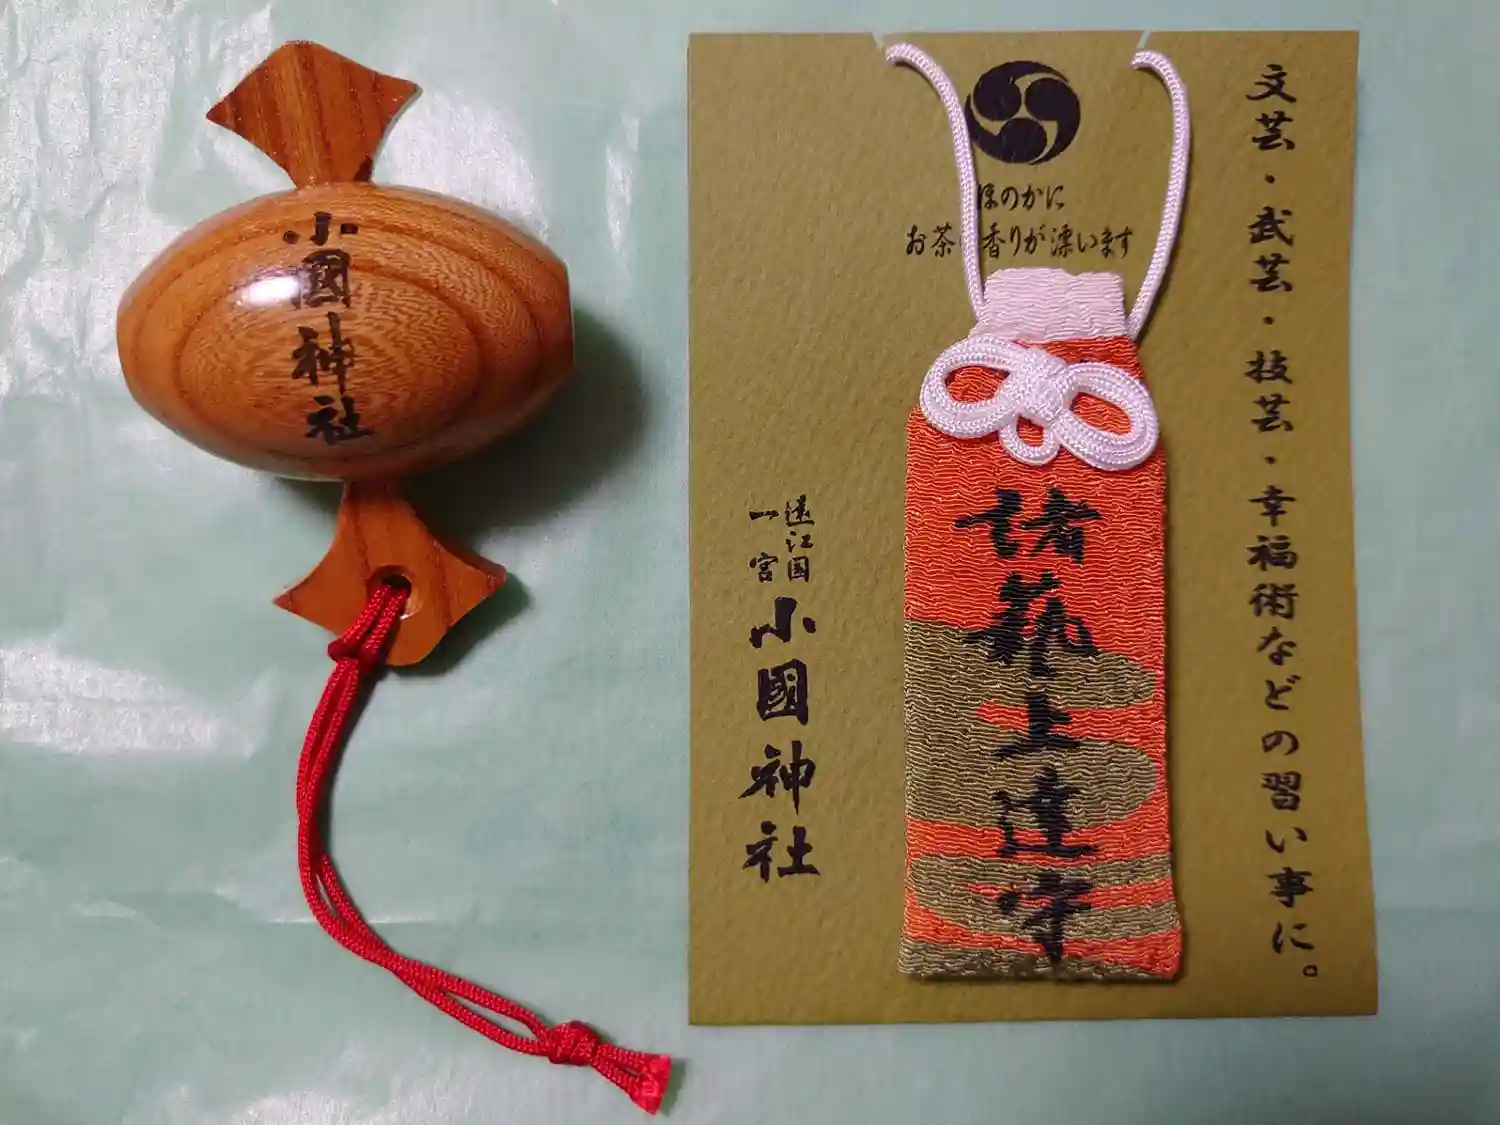 小國神社
文芸・武芸・技芸・幸福術などの習い事に。
ほのかに
お茶の香りが漂います
諸藝上達守
遠江国
一宮
小國神社